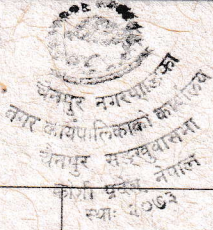 चैनपुर नगरपालिका
नगर कार्यपालिकाको कार्यालय
चैनपुर सङ्खुवासभा
कोशी प्रदेश, नेपाल
स्था: २०७३